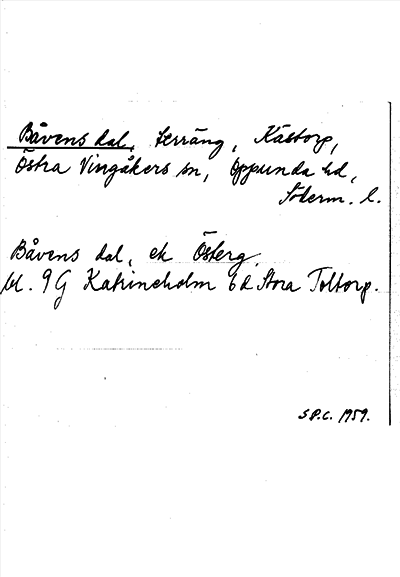 Båvens dal, terräng, Kästorp,
Östra Vingåkers sn, Oppunda hd,
Söderm. l.
Båvens dal, ek Österg.
bl. 9G Katrineholm 6d Stora Toltorp.
S.P.C. 1959.